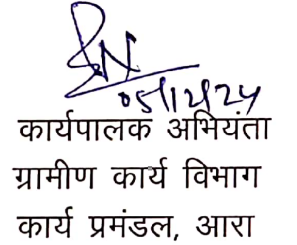 05/12/24
कार्यपालक अभियंता
ग्रामीण कार्य विभाग
कार्य प्रमंडल, आरा